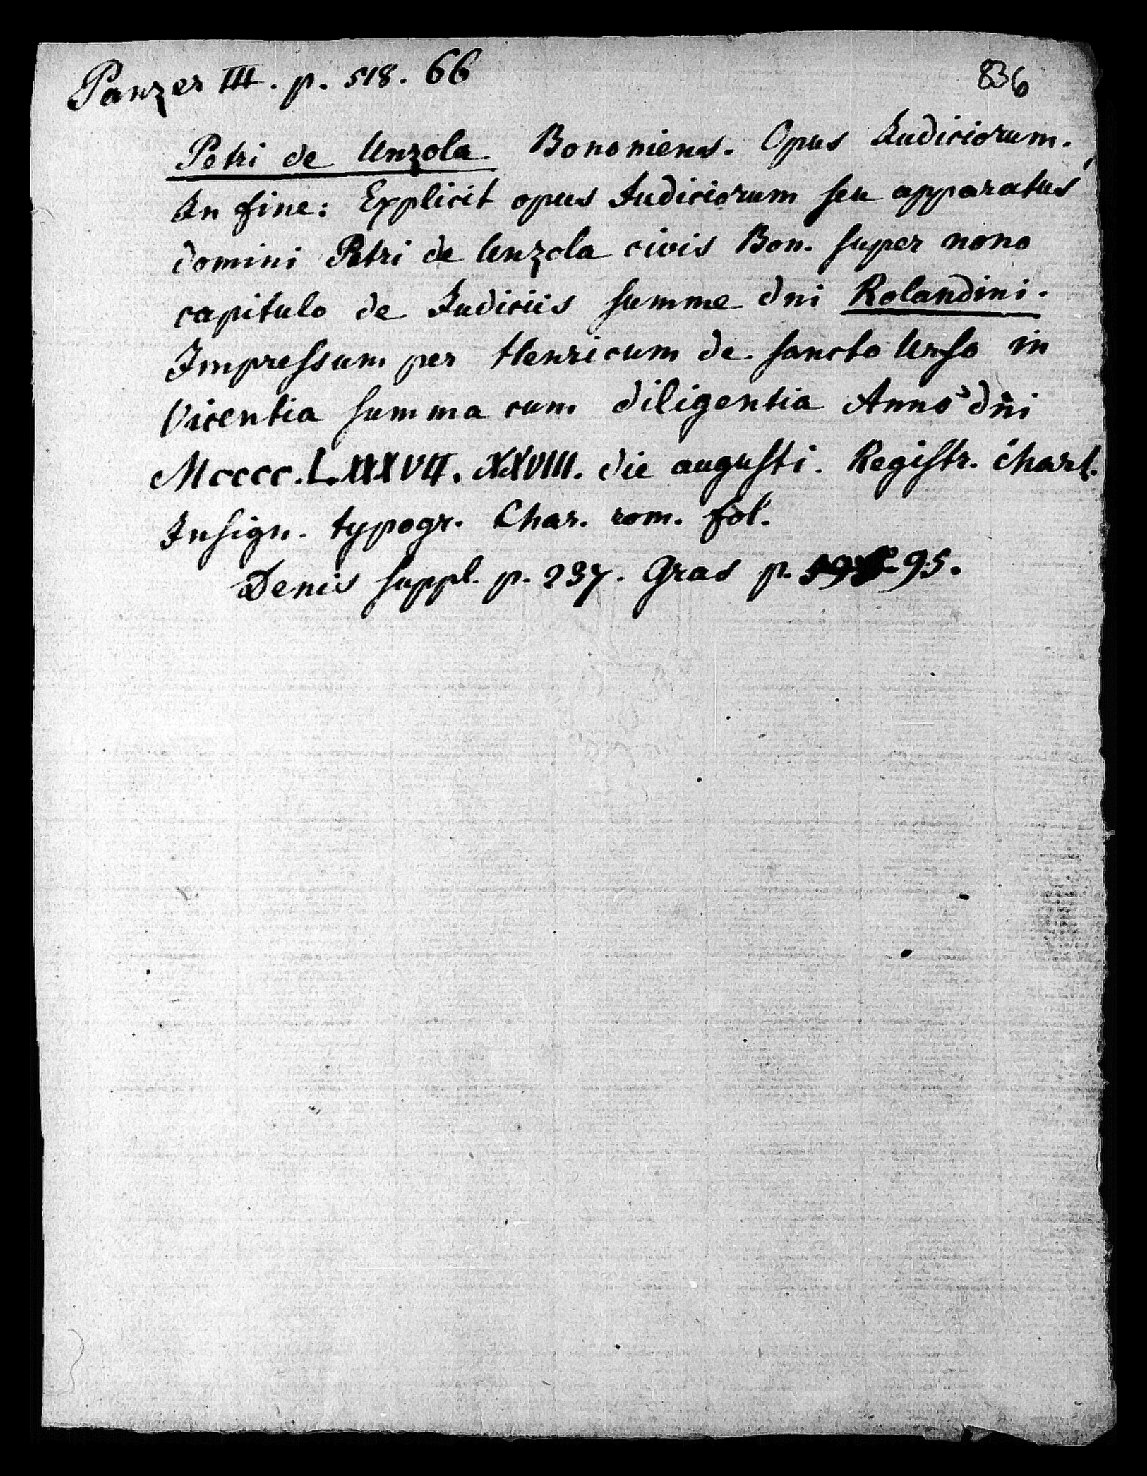 Panzer III. p. 518. 66
836
Petri de Unzola Bononiens. Opus Iudiciorum.
In fine: Explicit opus Iudiciorum seu apparatus
domini Petri de Unzola civis Bon. super nono
capitulo de Iudiciis summe dni Rolandini.
Impressum per Henricum de sancto Urso in
Vicentia summa cum diligentia Anno dni
Mcccc.LXXXVII. XXVIII. die augusti. Registr. chart.
Insign. typogr. Char. rom. fol.
Denis suppl. p. 237. Gras p. 95.